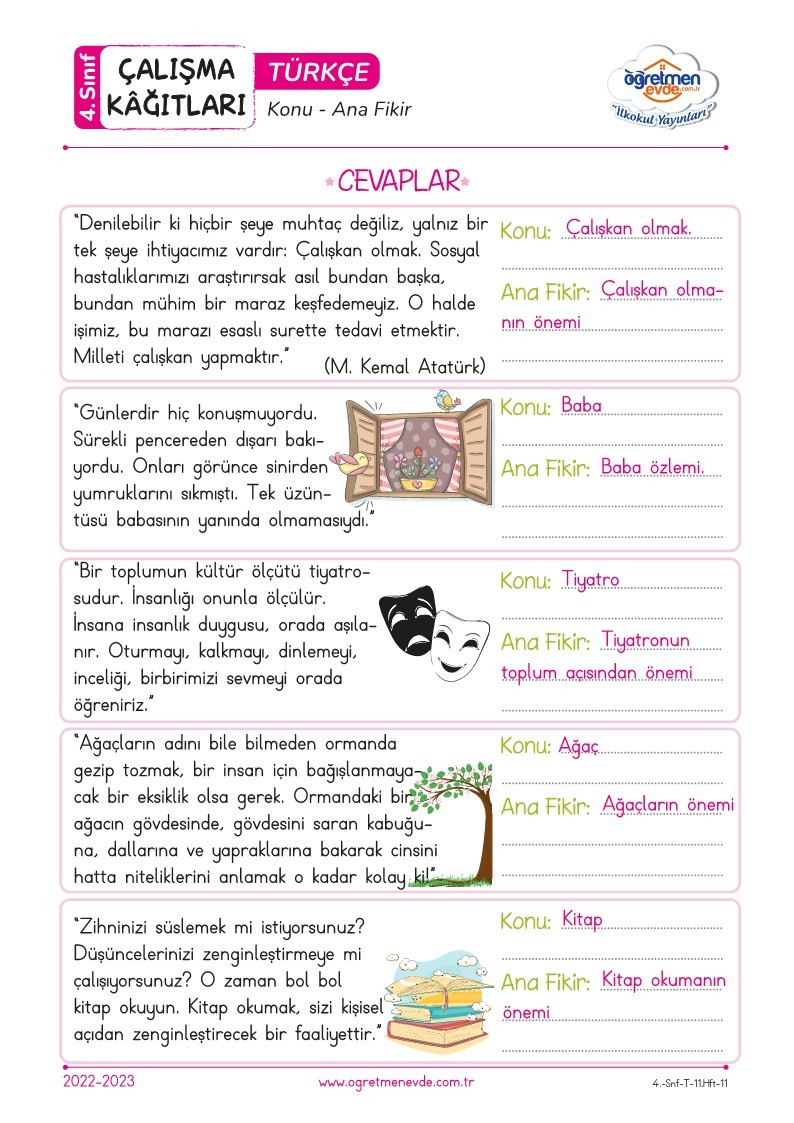 4. Sınıf
ÇALIŞMA
KÂĞITLARI
TÜRKÇE
Konu - Ana Fikir
öğretmen
evde.com.tr
"İlkokul Yayınları"
CEVAPLAR
"Denilebilir ki hiçbir şeye muhtaç değiliz, yalnız bir
tek şeye ihtiyacımız vardır: Çalışkan olmak. Sosyal
hastalıklarımızı araştırırsak asıl bundan başka,
bundan mühim bir maraz keşfedemeyiz. O halde
işimiz, bu marazı esaslı surette tedavi etmektir.
Milleti çalışkan yapmaktır."
(M. Kemal Atatürk)
Konu: Çalışkan olmak.
Ana Fikir: Çalışkan olma-
nın önemi
"Günlerdir hiç konuşmuyordu.
Sürekli pencereden dışarı bakı-
yordu. Onları görünce sinirden
yumruklarını sıkmıştı. Tek üzün-
tüsü babasının yanında olmamasıydı."
Konu: Baba
Ana Fikir: Baba özlemi.
"Bir toplumun kültür ölçütü tiyatro-
sudur. İnsanlığı onunla ölçülür.
İnsana insanlık duygusu, orada aşıla-
nır. Oturmayı, kalkmayı, dinlemeyi,
inceliği, birbirimizi sevmeyi orada
öğreniriz."
Konu: Tiyatro
Ana Fikir: Tiyatronun
toplum açısından önemi
"Ağaçların adını bile bilmeden ormanda
gezip tozmak, bir insan için bağışlanmaya-
cak bir eksiklik olsa gerek. Ormandaki bir
ağacın gövdesinde, gövdesini saran kabuğu-
na, dallarına ve yapraklarına bakarak cinsini
hatta niteliklerini anlamak o kadar kolay ki!"
Konu: Ağaç
Ana Fikir: Ağaçların önemi
"Zihninizi süslemek mi istiyorsunuz?
Düşüncelerinizi zenginleştirmeye mi
çalışıyorsunuz? O zaman bol bol
kitap okuyun. Kitap okumak, sizi kişisel
açıdan zenginleştirecek bir faaliyettir."
Konu: Kitap
Ana Fikir: Kitap okumanın
önemi
2022-2023
www.ogretmenevde.com.tr
4.-Snf-T-11.Hft-11